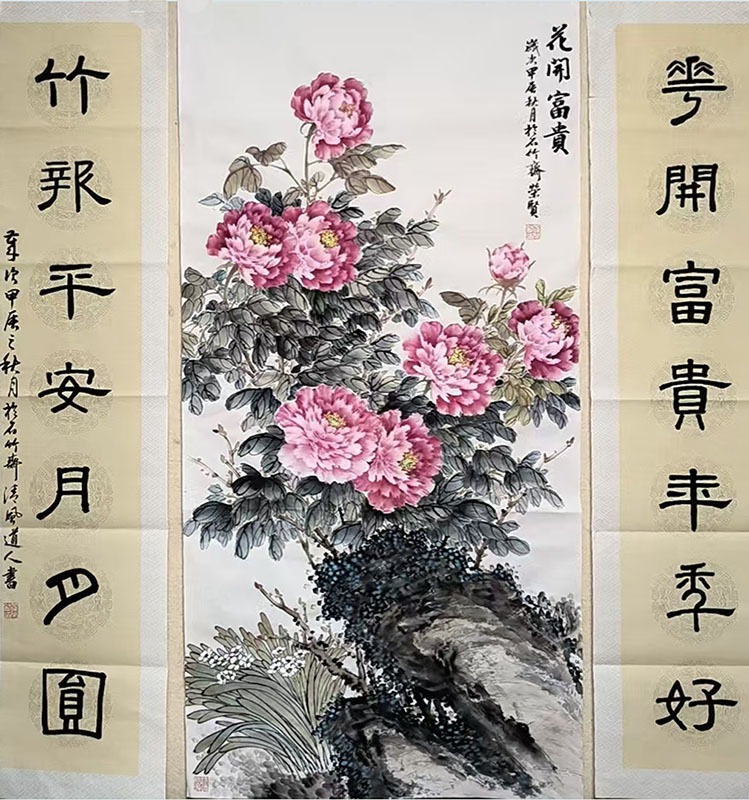 華開富貴年秊好
花開富貴
歲次甲辰秋月於石竹齋榮賢
竹報平安月月圓
歲次甲辰之秋月於石竹齋清風道人書